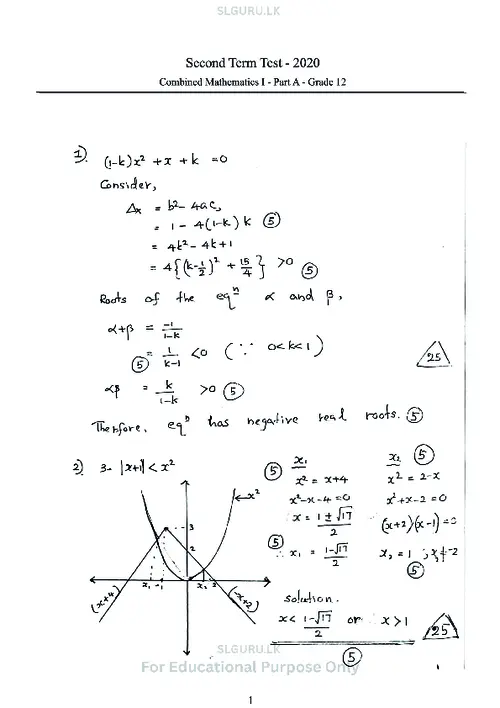 SLGURU.LK
Second Term Test - 2020
Combined Mathematics I - Part A - Grade 12
1). (1-k)x² + x + k = 0
Consider,
Δx = b² - 4ac,
= 1 - 4(1-k)k ⑤
= 4k² - 4k + 1
= 4{(k-1/2)² + 15/4} > 0 ⑤
Roots of the eqⁿ α and β,
α+β = -1/1-k
⑤ = 1/k-1 < 0 (∵ 0<k<1)
25
αβ = k/1-k > 0 ⑤
Therefore, eqⁿ has negative real roots. ⑤
2) 3 - |x+1| < x²
x²
3
2
x₁ -1 x₂ 2
(x+4)
(-x+2)
⑤ x₁
x² = x+4
x²-x-4 = 0
x = 1 ± √17 / 2
⑤ ∴ x₁ = 1-√17 / 2
x₂ ⑤
x² = 2-x
x²+x-2 = 0
(x+2)(x-1) = 0
x₂ = 1 ; x₂ ≠ -2
⑤
solution.
x < 1-√17 / 2 or x > 1
25
⑤
SLGURU.LK
For Educational Purpose Only
1